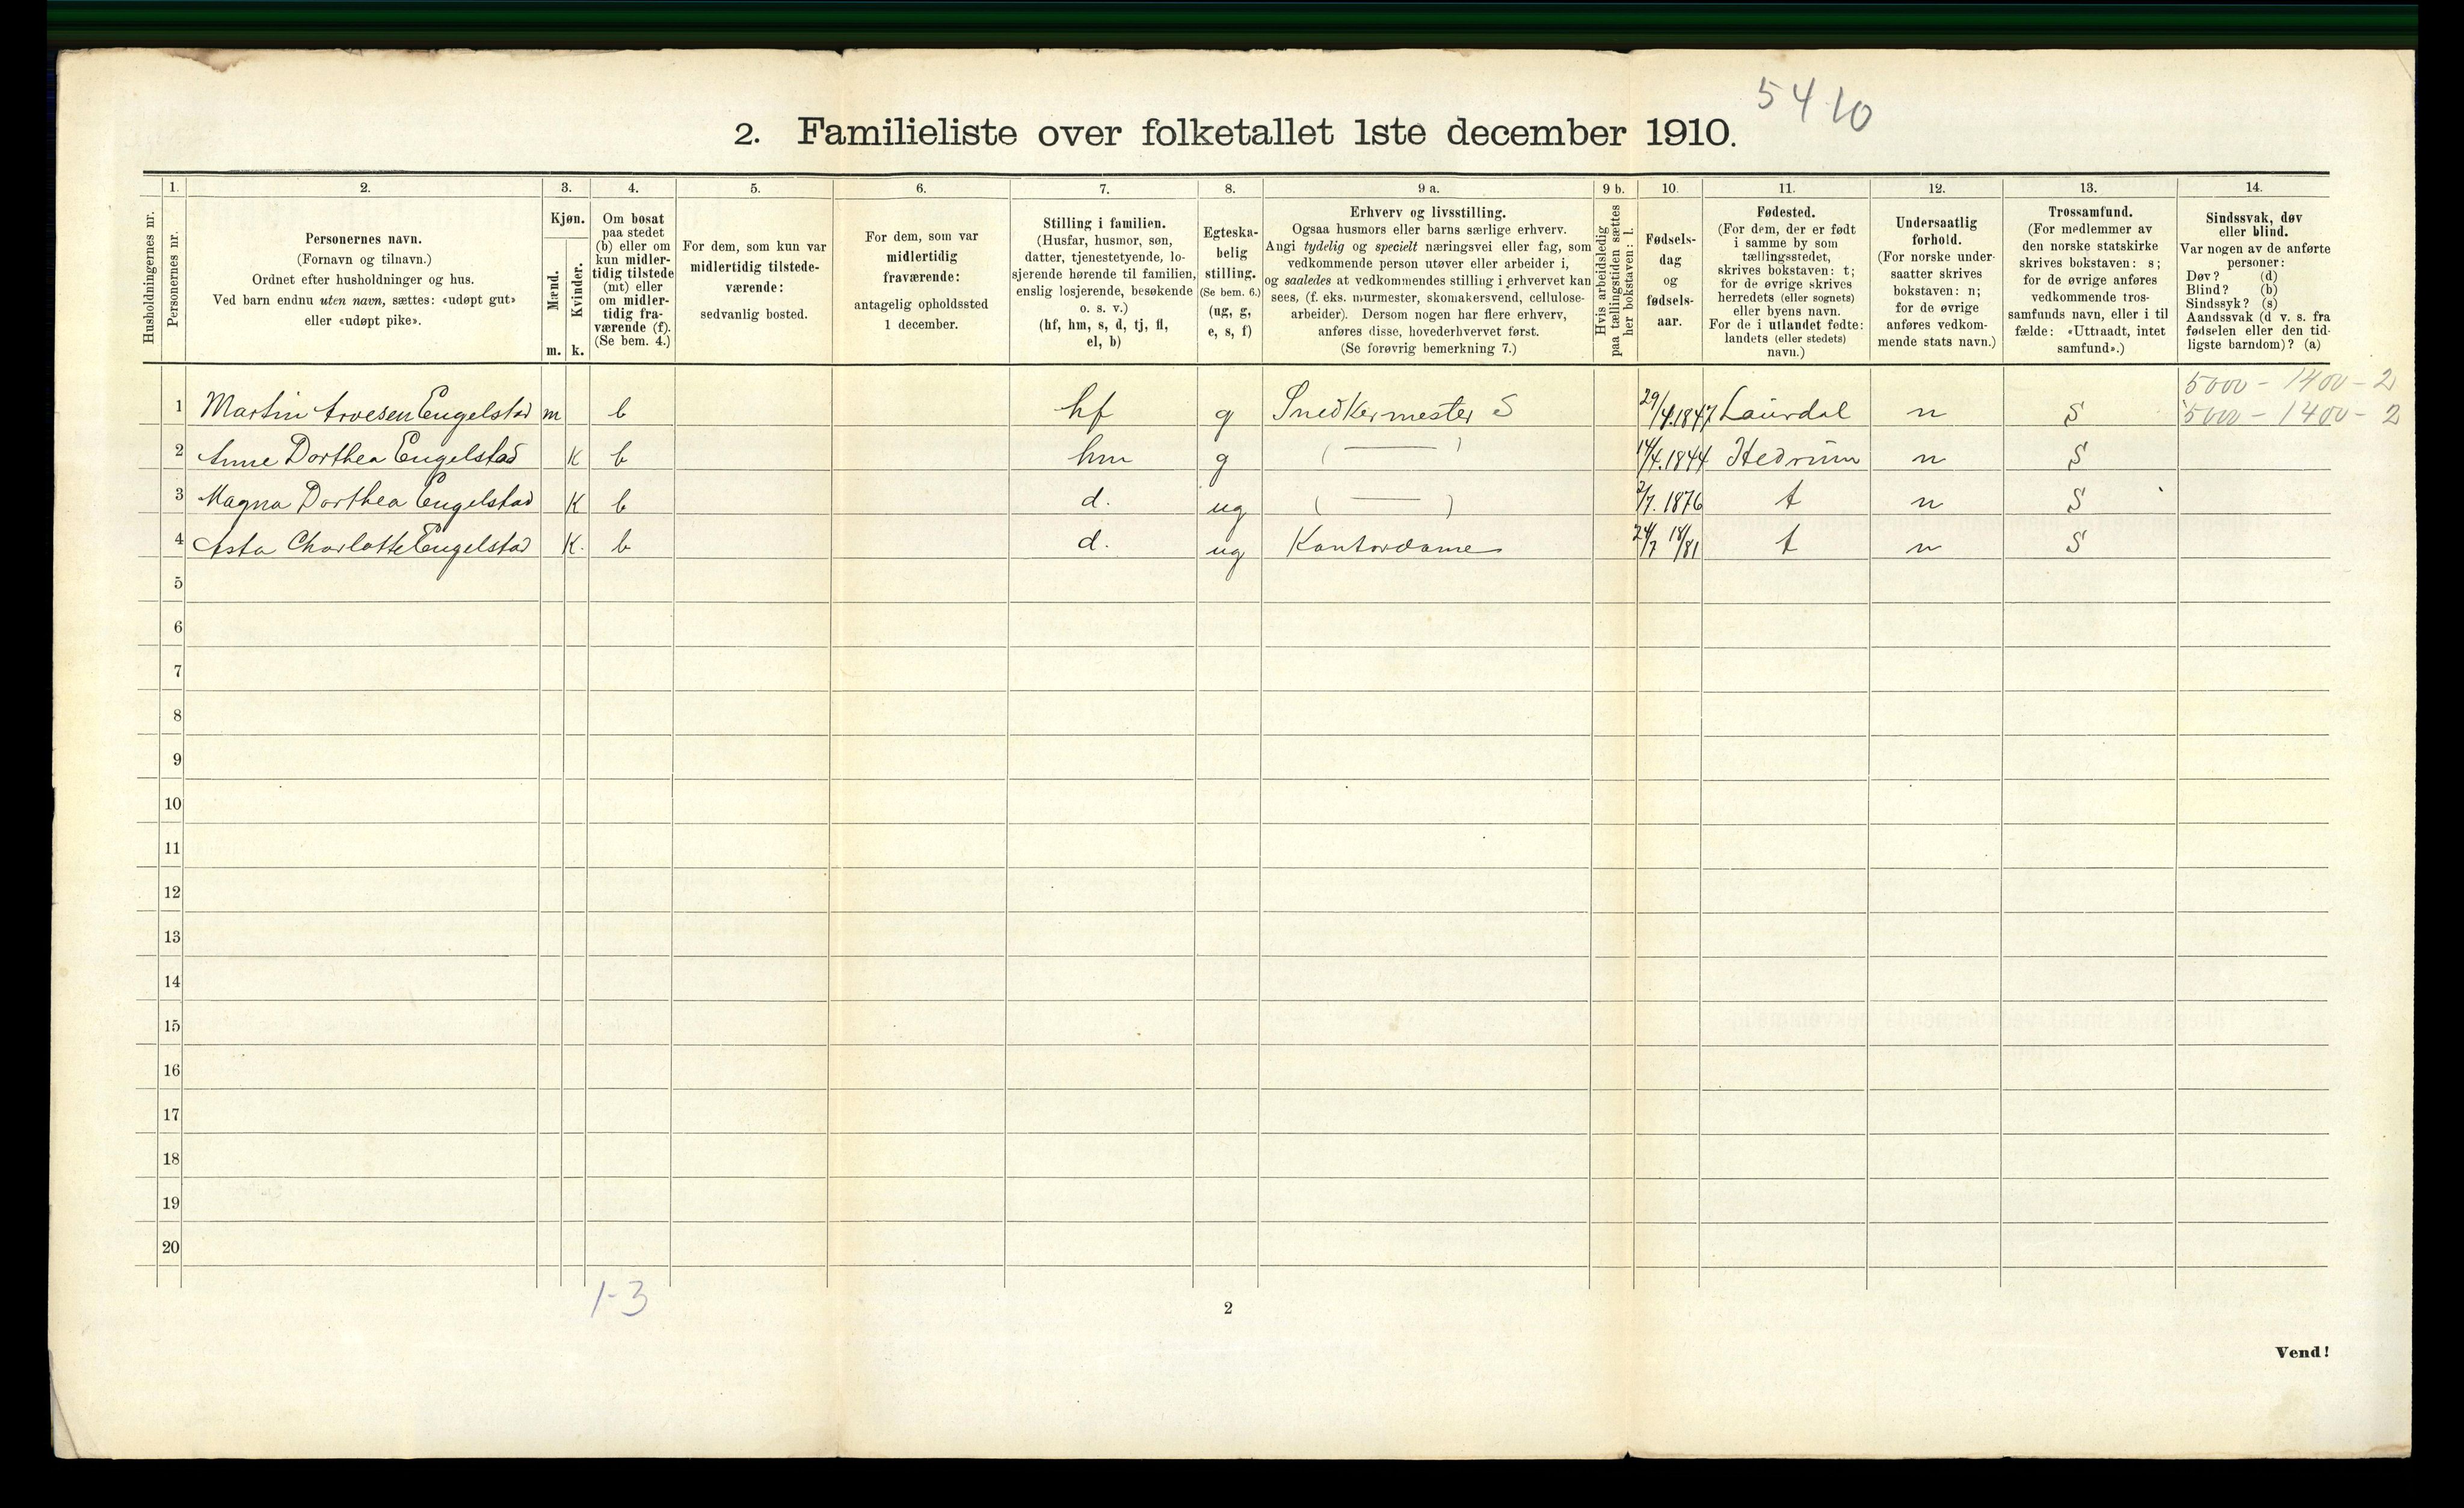 5410
2. Familieliste over folketallet 1ste december 1910.
Husholdningernes nr.
1.
Personernes nr.
2.
Personernes navn.
(Fornavn og tilnavn.)
Ordnet efter husholdninger og hus.
Ved barn endnu uten navn, sættes: «udøpt gut»
eller «udøpt pike».
3.
Kjøn.
Mænd.
m.
Kvinder.
k.
4.
Om bosat
paa stedet
(b) eller om
kun midler-
tidig tilstede
(mt) eller
om midler-
tidig fra-
værende (f).
(Se bem. 4.)
5.
For dem, som kun var
midlertidig tilstede-
værende:
sedvanlig bosted.
6.
For dem, som var
midlertidig
fraværende:
antagelig opholdssted
1 december.
7.
Stilling i familien.
(Husfar, husmor, søn,
datter, tjenestetyende, lo-
sjerende hørende til familien,
enslig losjerende, besøkende
o. s. v.)
(hf, hm, s, d, tj, fl,
el, b)
8.
Egteska-
belig
stilling.
(Se bem. 6.)
(ug, g,
e, s, f)
9 a.
Erhverv og livsstilling.
Ogsaa husmors eller barns særlige erhverv.
Angi tydelig og specielt næringsvei eller fag, som
vedkommende person utøver eller arbeider i,
og saaledes at vedkommendes stilling i erhvervet kan
sees, (f. eks. murmester, skomakersvend, cellulose-
arbeider). Dersom nogen har flere erhverv,
anføres disse, hovederhvervet først.
(Se forøvrig bemerkning 7.)
9 b.
Hvis arbeidsledig
paa tællingstiden sættes
her bokstaven: l.
10.
Fødsels-
dag
og
fødsels-
aar.
11.
Fødested.
(For dem, der er født
i samme by som
tællingsstedet,
skrives bokstaven: t;
for de øvrige skrives
herredets (eller sognets)
eller byens navn.
For de i utlandet fødte:
landets (eller stedets)
navn.)
12.
Undersaatlig
forhold.
(For norske under-
saatter skrives
bokstaven: n;
for de øvrige
anføres vedkom-
mende stats navn.)
13.
Trossamfund.
(For medlemmer av
den norske statskirke
skrives bokstaven: s;
for de øvrige anføres
vedkommende tros-
samfunds navn, eller i til
fælde: «Uttraadt, intet
samfund».)
14.
Sindssvak, døv
eller blind.
Var nogen av de anførte
personer:
Døv? (d)
Blind? (b)
Sindssyk? (s)
Aandssvak (d v. s. fra
fødselen eller den tid-
ligste barndom)? (a)
5000 - 1400 - 2
1 Martin Arvesen Engelstad m b hf g Snedkermester S 29/4.1847 Laurdal n S 5000 - 1400 - 2
2 Anne Dorthea Engelstad K b hm g ( — ) 14/4.1844 Hedrum n S
3 Magna Dorthea Engelstad K b d. ug ( — ) 2/7. 1876 t n S
4 Asta Charlotte Engelstad K. b d. ug Kontordame 24/7 18/81 t n S
5
6
7
8
9
10
11
12
13
14
15
16
17
18
19
20
1-3
2
Vend!